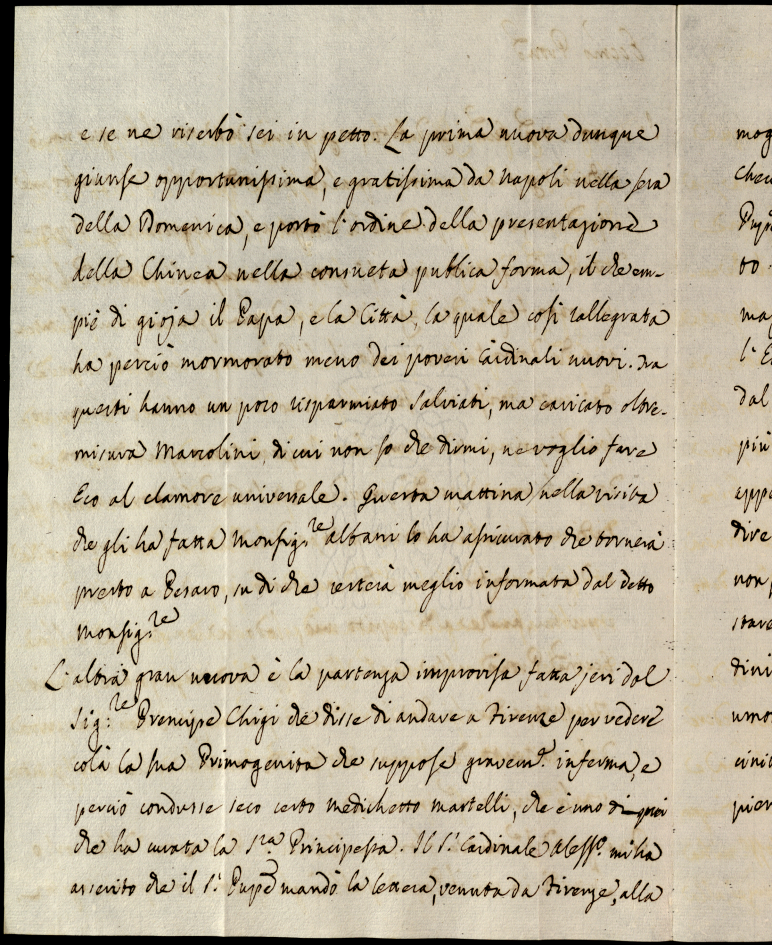 e se ne riserbò sei in petto. La prima nuova dunque
giunse opportunissima, e gratissima da Napoli nella sera
della Domenica, e portò l'ordine della presentazione
della Chinea nella consueta publica forma, il che em-
piè di gioja il Papa, e la Città, la quale così rallegrata
ha perciò mormorato meno dei poveri Cardinali nuovi. Tra
questi hanno un poco risparmiato Salviati, ma caricato oltre-
misura Marcolini, di cui non so che dirmi, ne voglio fare
Eco al clamore universale. Questa mattina nella visita
che gli ha fatta Monsig.re Albani lo ha assicurato che tornerà
presto a Pesaro, su di che resterà meglio informata dal detto
Monsig.re
L'altra gran nuova è la partenza improvisa fatta jeri dal
Sig.re Prencipe Chigi che disse di andare a Firenze per vedere
colà la sua Primogenita che suppose gravem.e inferma, e
perciò condusse seco certo medichetto Martelli, che è uno di quei
che ha curata la S.ra Principessa. Il S.r Cardinale Aless.o mi ha
asserito che il S.r mandò la lettera, venuta da Firenze, alla
mog
che
Pup
to
ma
l'E
dal
più
appo
dire
non
stare
divi
umo
cini
pier